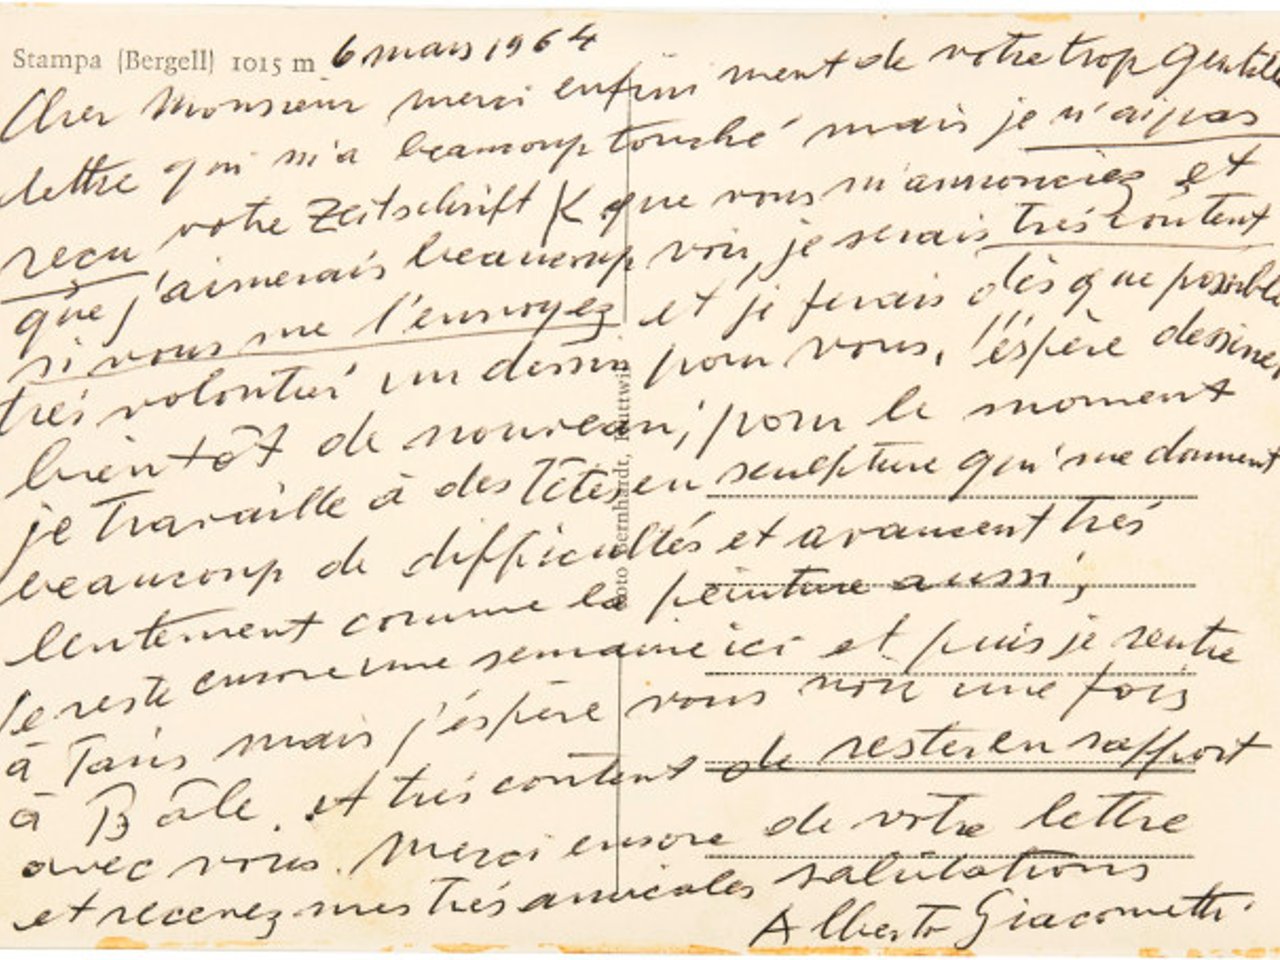 Stampa (Bergell) 1015 m 6 mars 1964
Cher Monsieur merci enfini ment de votre trop gentille
lettre qui m'a beaucoup touché mais je n'ai pas
reçu votre Zeitschrift K que vous m'annonciez et
que j'aimerais beaucoup voir, je serais très content
si vous me l'envoyez et je ferais dès que possible
très volontier un dessin pour vous, j'éspère dessiner
bientôt de nouveau; pour le moment
je travaille à des Têtes en sculpture qui me donnent
beaucoup de difficultés et avancent très
lentement comme la peinture aussi;
Je reste encore une semaine ici et puis je rentre
à Paris mais j'éspère vous voir une fois
à Bâle. et très content de rester en rapport
avec vous. Merci encore de votre lettre
et recevez mes très amicales salutations
Alberto Giacometti.
Foto Bernhardt, Buttwil